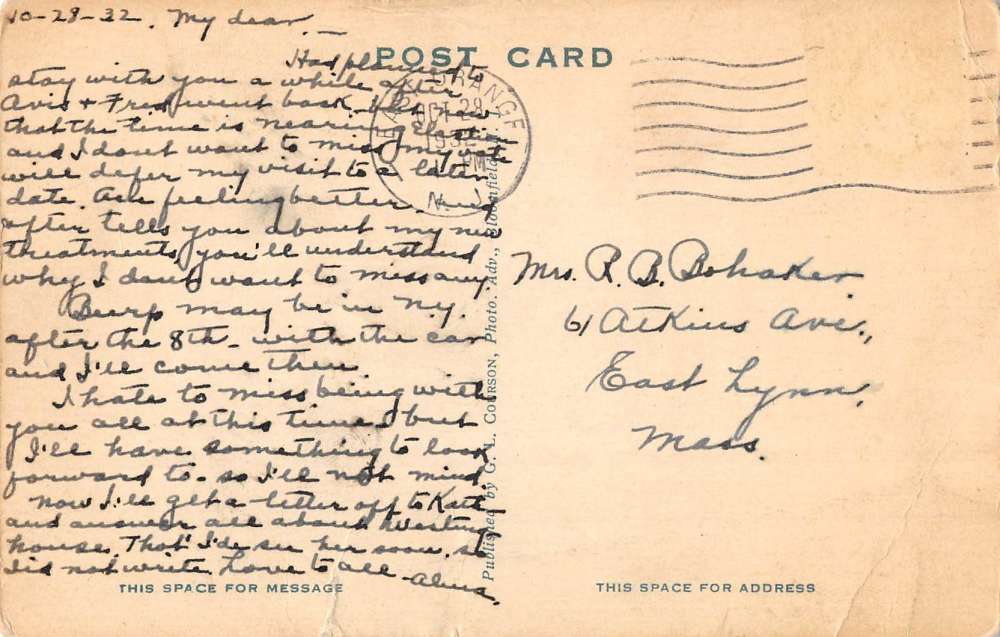 10-28-32. My dear -
POST CARD
Had planned to
stay with you a while after
Avis & Fred went back - but now
that the time is nearing Election
and I don't want to miss my vote
will defer my visit to a later
date. Am feeling better -
after tells you about my new
treatments, you'll understand
why I don't want to miss any.
may be in N.Y.
after the 8th - with the car
and I'll come then.
I hate to miss being with
you all at this time, but
I'll have something to look
forward to - so I'll not mind.
Now I'll get a letter off to Kate
and answer all about Westing
house. Thot I'd see her soon, so
did not write. Love to all - Alma.
THIS SPACE FOR MESSAGE
EAST ORANGE
OCT 28
1932
PM
N.J.
Published by G. A. COURSON, Photo. Adv., Bloomfield
Mrs. R. B. Bohaker
61 Atkins Ave.,
East Lynn,
Mass.
THIS SPACE FOR ADDRESS